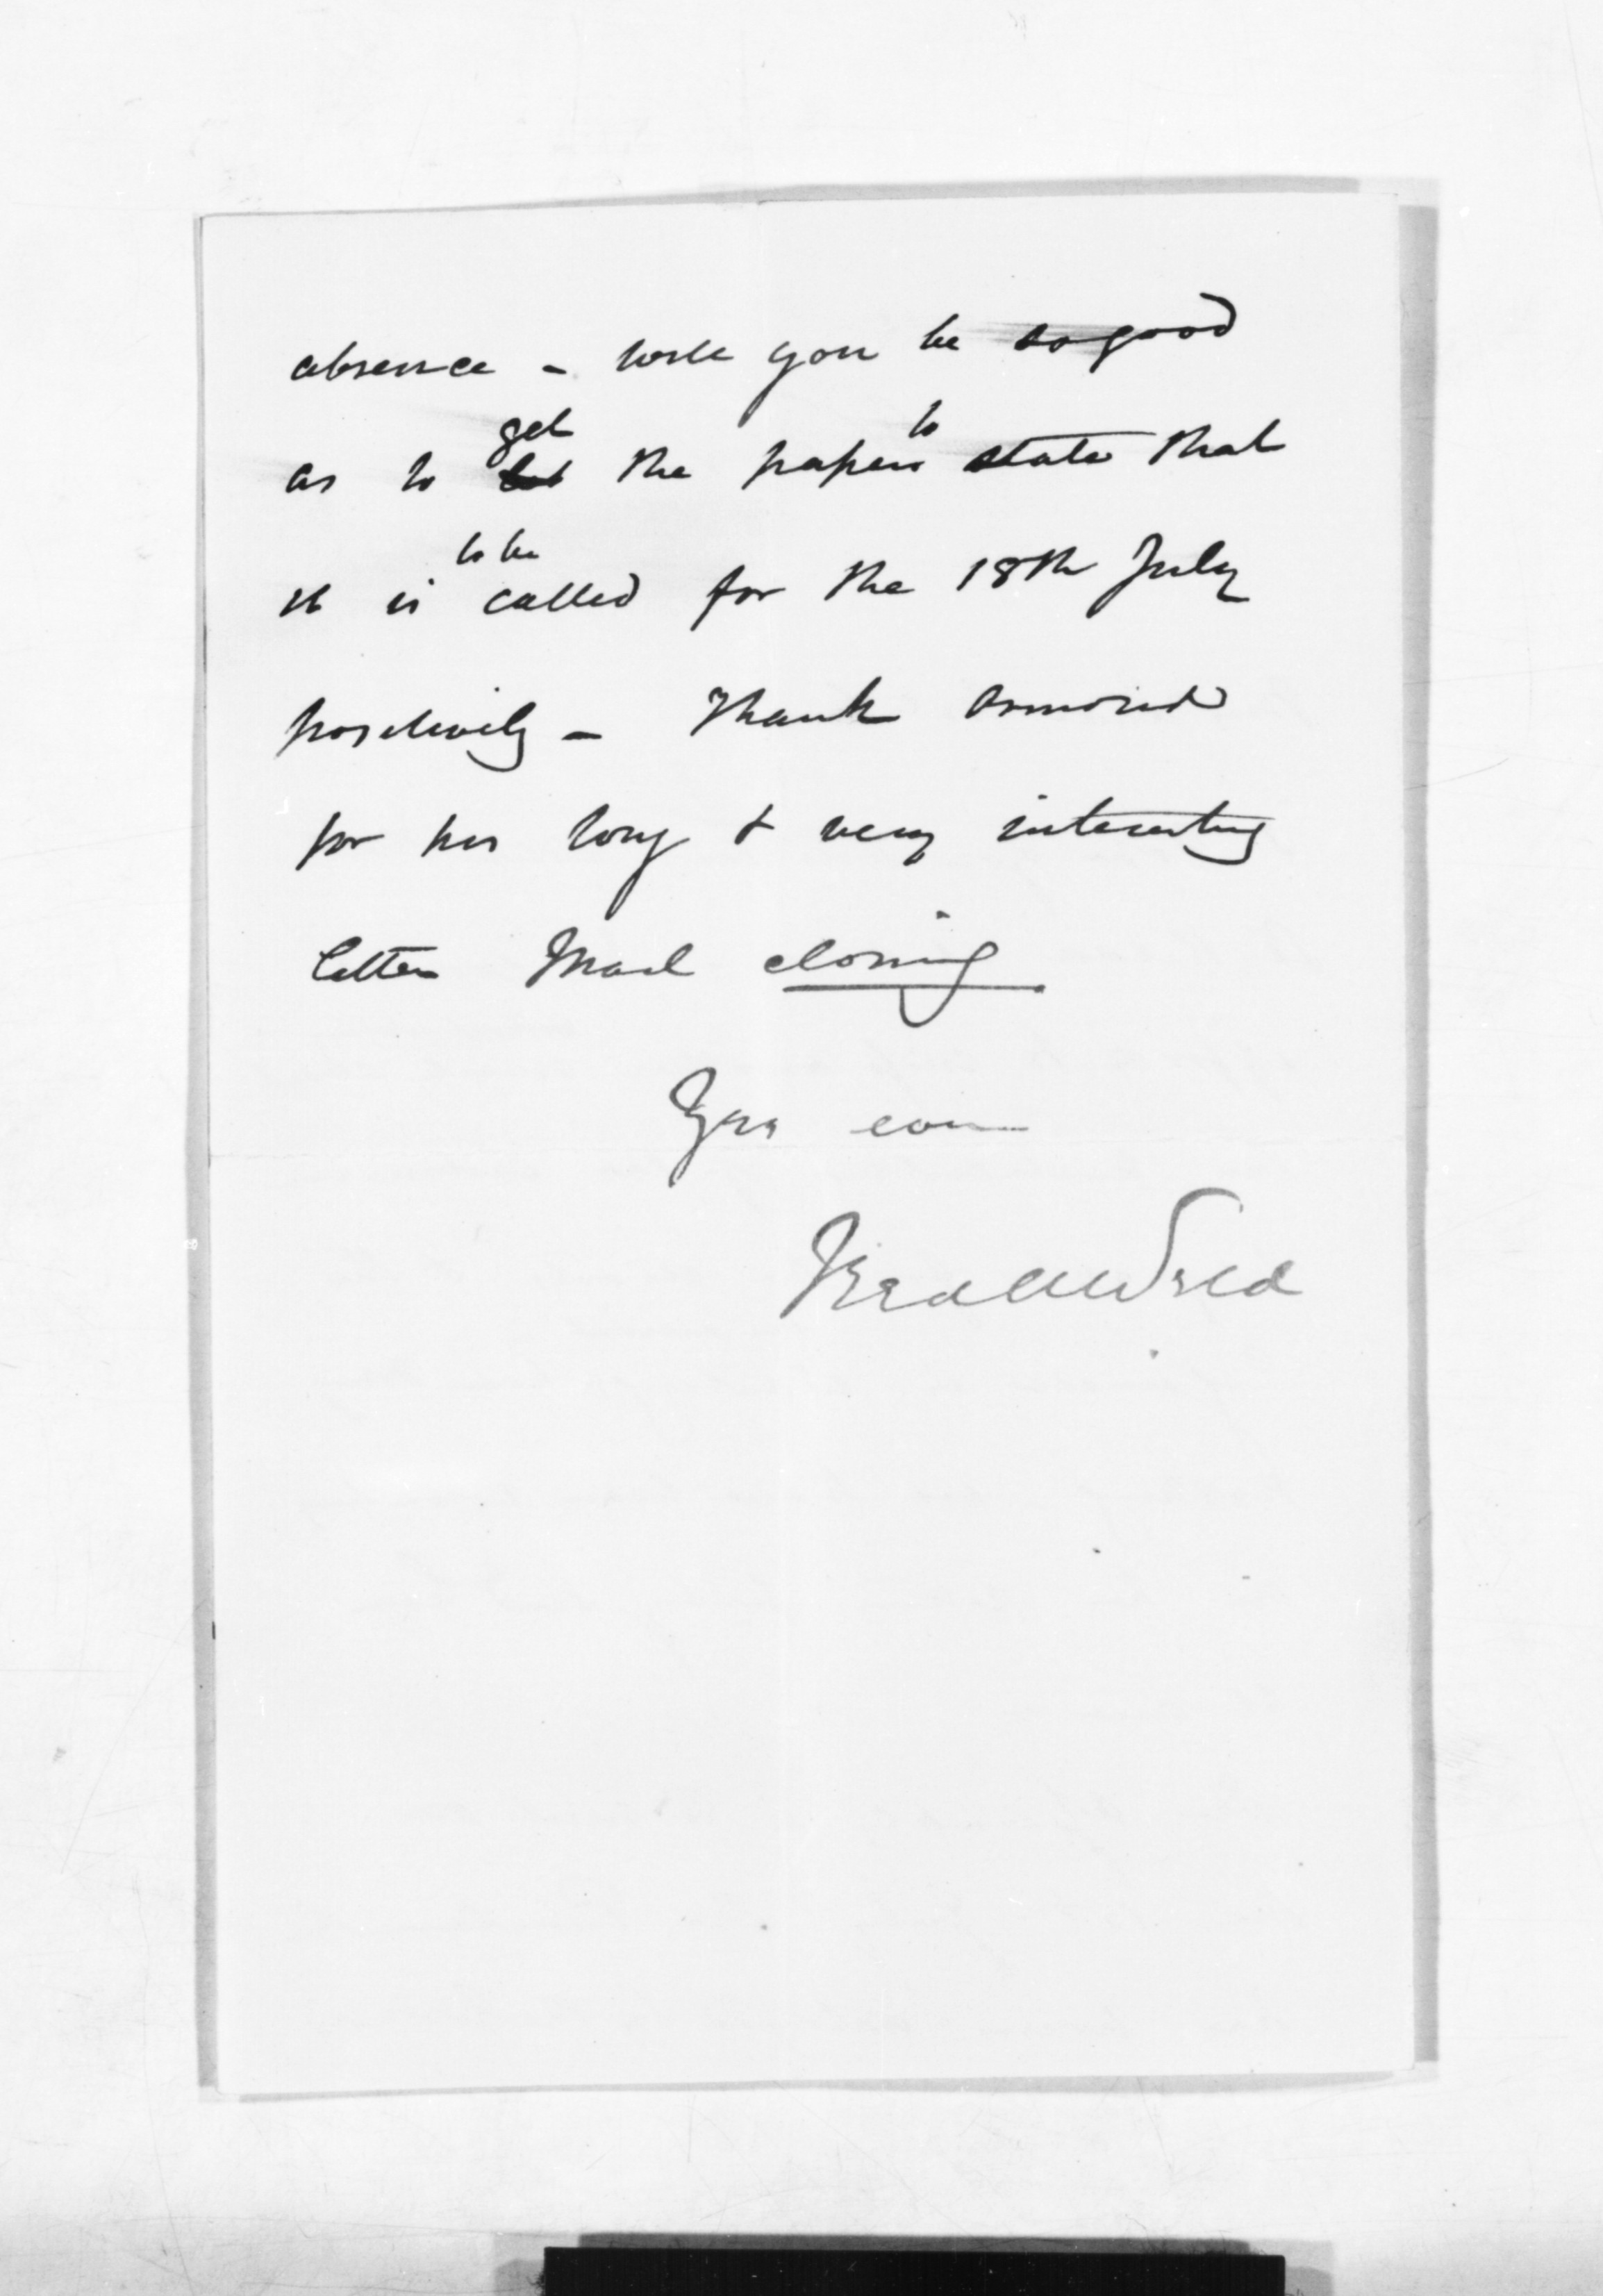 absence - will you be so good
get to
as to the papers state that
to be
it is called for the 18th July
positively - Thank Ormond
for his long & very interesting
letter Mail closing
Yrs